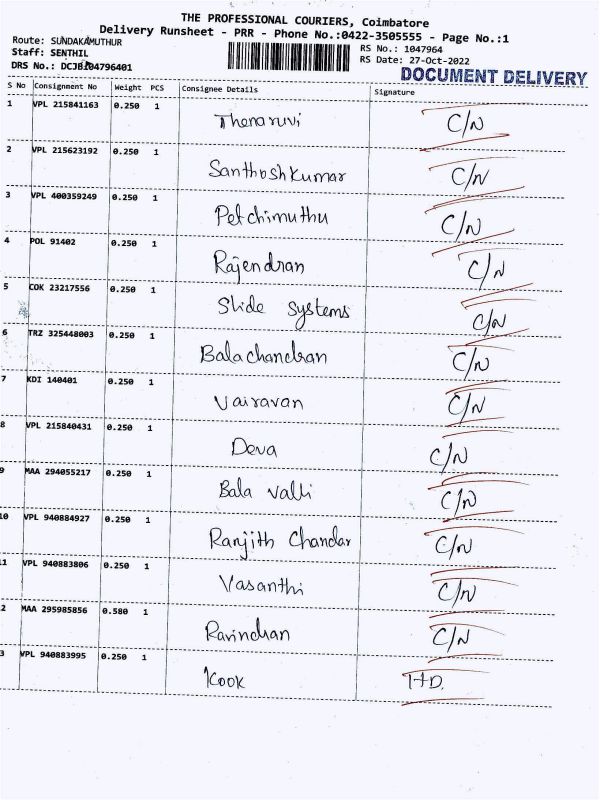 THE PROFESSIONAL COURIERS, Coimbatore
Delivery Runsheet - PRR - Phone No.:0422-3505555 - Page No.:1
Route: SUNDAKAMUTHUR
Staff: SENTHIL
DRS No.: DCJBJ04796401
RS No.: 1047964
RS Date: 27-Oct-2022
DOCUMENT DELIVERY
S No Consignment No Weight PCS Consignee Details Signature
1 VPL 215841163 0.250 1 Thenaruvi C/N
2 VPL 215623192 0.250 1 Santhoshkumar C/N
3 VPL 400359249 0.250 1 Petchimuthu C/N
4 POL 91402 0.250 1 Rajendran C/N
5 COK 23217556 0.250 1 Slide Systems C/N
6 TRZ 325448003 0.250 1 Balachandran C/N
7 KDI 140401 0.250 1 Vairavan C/N
8 VPL 215840431 0.250 1 Deva C/N
9 MAA 294055217 0.250 1 Bala valli C/N
10 VPL 940884927 0.250 1 Ranjith Chandar C/N
11 VPL 940883806 0.250 1 Vasanthi C/N
2 MAA 295985856 0.580 1 Ravindran C/N
3 VPL 940883995 0.250 1 Kook H.D.